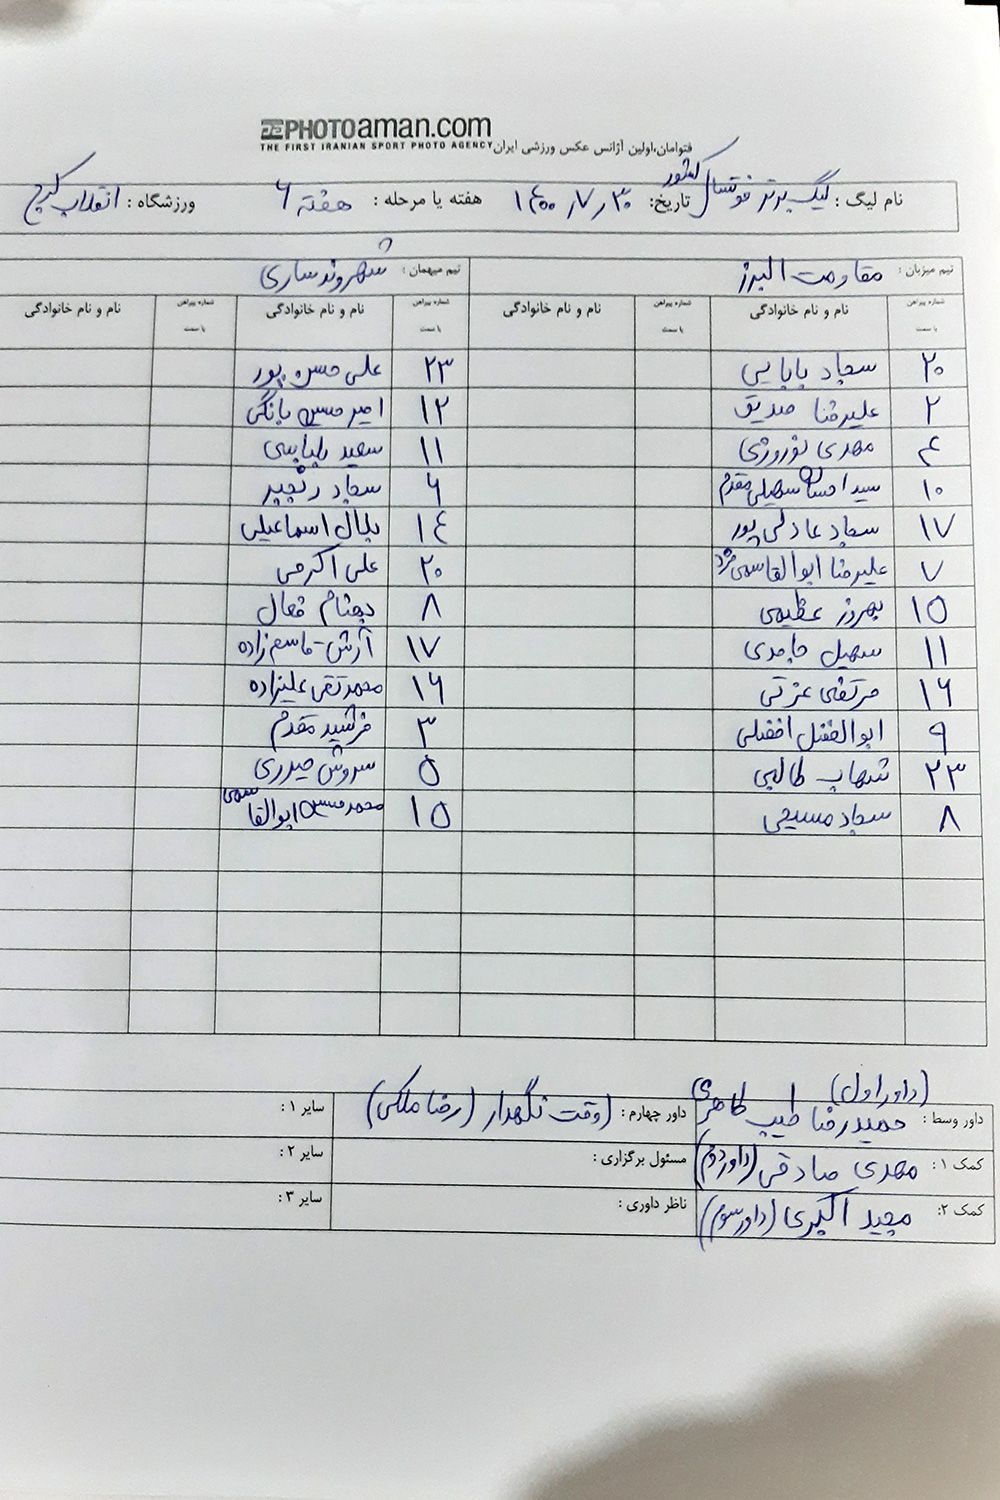 PHOTOaman.com
THE FIRST IRANIAN SPORT PHOTO AGENCY فتوامان،اولین آژانس عکس ورزشی ایران
نام لیگ : لیگ برتر فوتسال کشور تاریخ: ۱۴۰۰/۷/۳۰ هفته یا مرحله : هفته ۶ ورزشگاه : انقلاب کرج
تیم میزبان : مقاومت البرز تیم میهمان : شهروند ساری
شماره پیراهن یا سمت نام و نام خانوادگی شماره پیراهن یا سمت نام و نام خانوادگی شماره پیراهن یا سمت نام و نام خانوادگی شماره پیراهن یا سمت نام و نام خانوادگی
۲۰ سجاد بابایی ۲۳ علی حسن پور
۲ علیرضا صدیق ۱۲ امیرحسین بانگی
۴ مهدی نوروزی ۱۱ سعید بابایی
۱۰ سید احسان سهیلی مقدم ۶ سجاد رنجبر
۱۷ سجاد عادلی پور ۱۴ بلال اسماعیلی
۷ علیرضا ابوالقاسمی نژاد ۲۰ علی اکرمی
۱۵ بهروز عظیمی ۸ بهنام فعال
۱۱ سهیل ماجدی ۱۷ آرش قاسم زاده
۱۶ مرتضی عزتی ۱۶ محمدتقی علیزاده
۹ ابوالفضل افضلی ۳ فرشید مقدم
۲۳ شهاب طالبی ۵ سروش حیدری
۸ سجاد مسیحی ۱۵ محمدحسین ابوالقاسمی
داور وسط : حمیدرضا طیب طاهری (داور اول) داور چهارم : (وقت نگهدار (رضا ملکی) سایر ۱ :
کمک ۱ : مهدی صادقی (داور دوم) مسئول برگزاری : سایر ۲ :
کمک ۲: مجید اکبری (داور سوم) ناظر داوری : سایر ۳ :